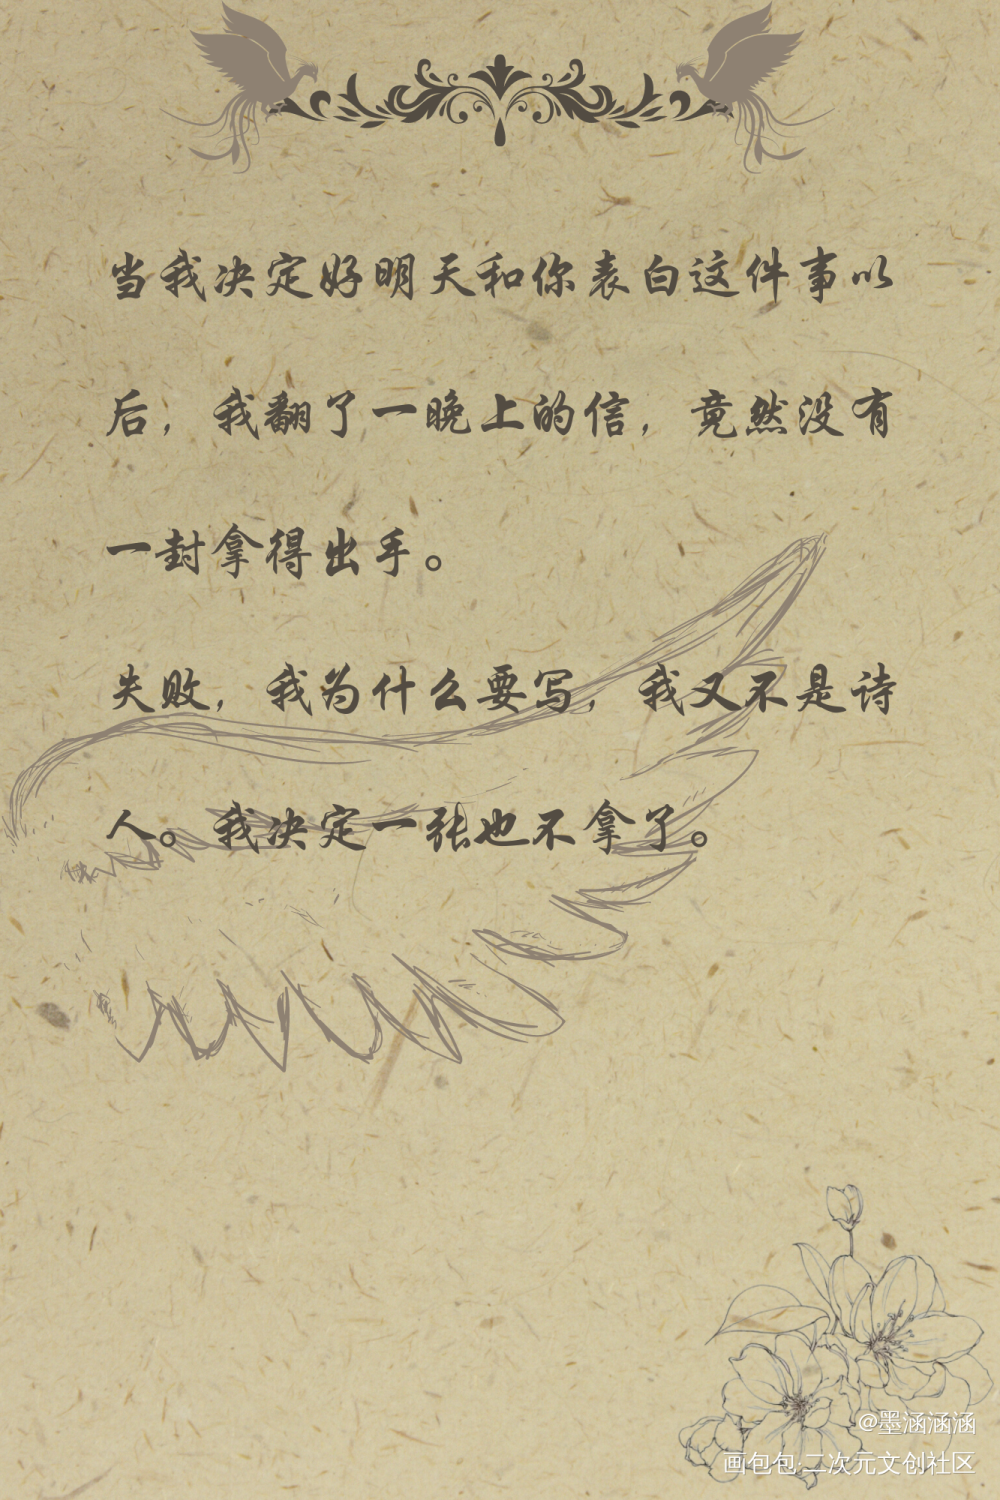 当我决定好明天和你表白这件事以
后，我翻了一晚上的信，竟然没有
一封拿得出手。
失败，我为什么要写，我又不是诗
人。我决定一张也不拿了。
@墨涵涵涵
画包包·二次元文创社区